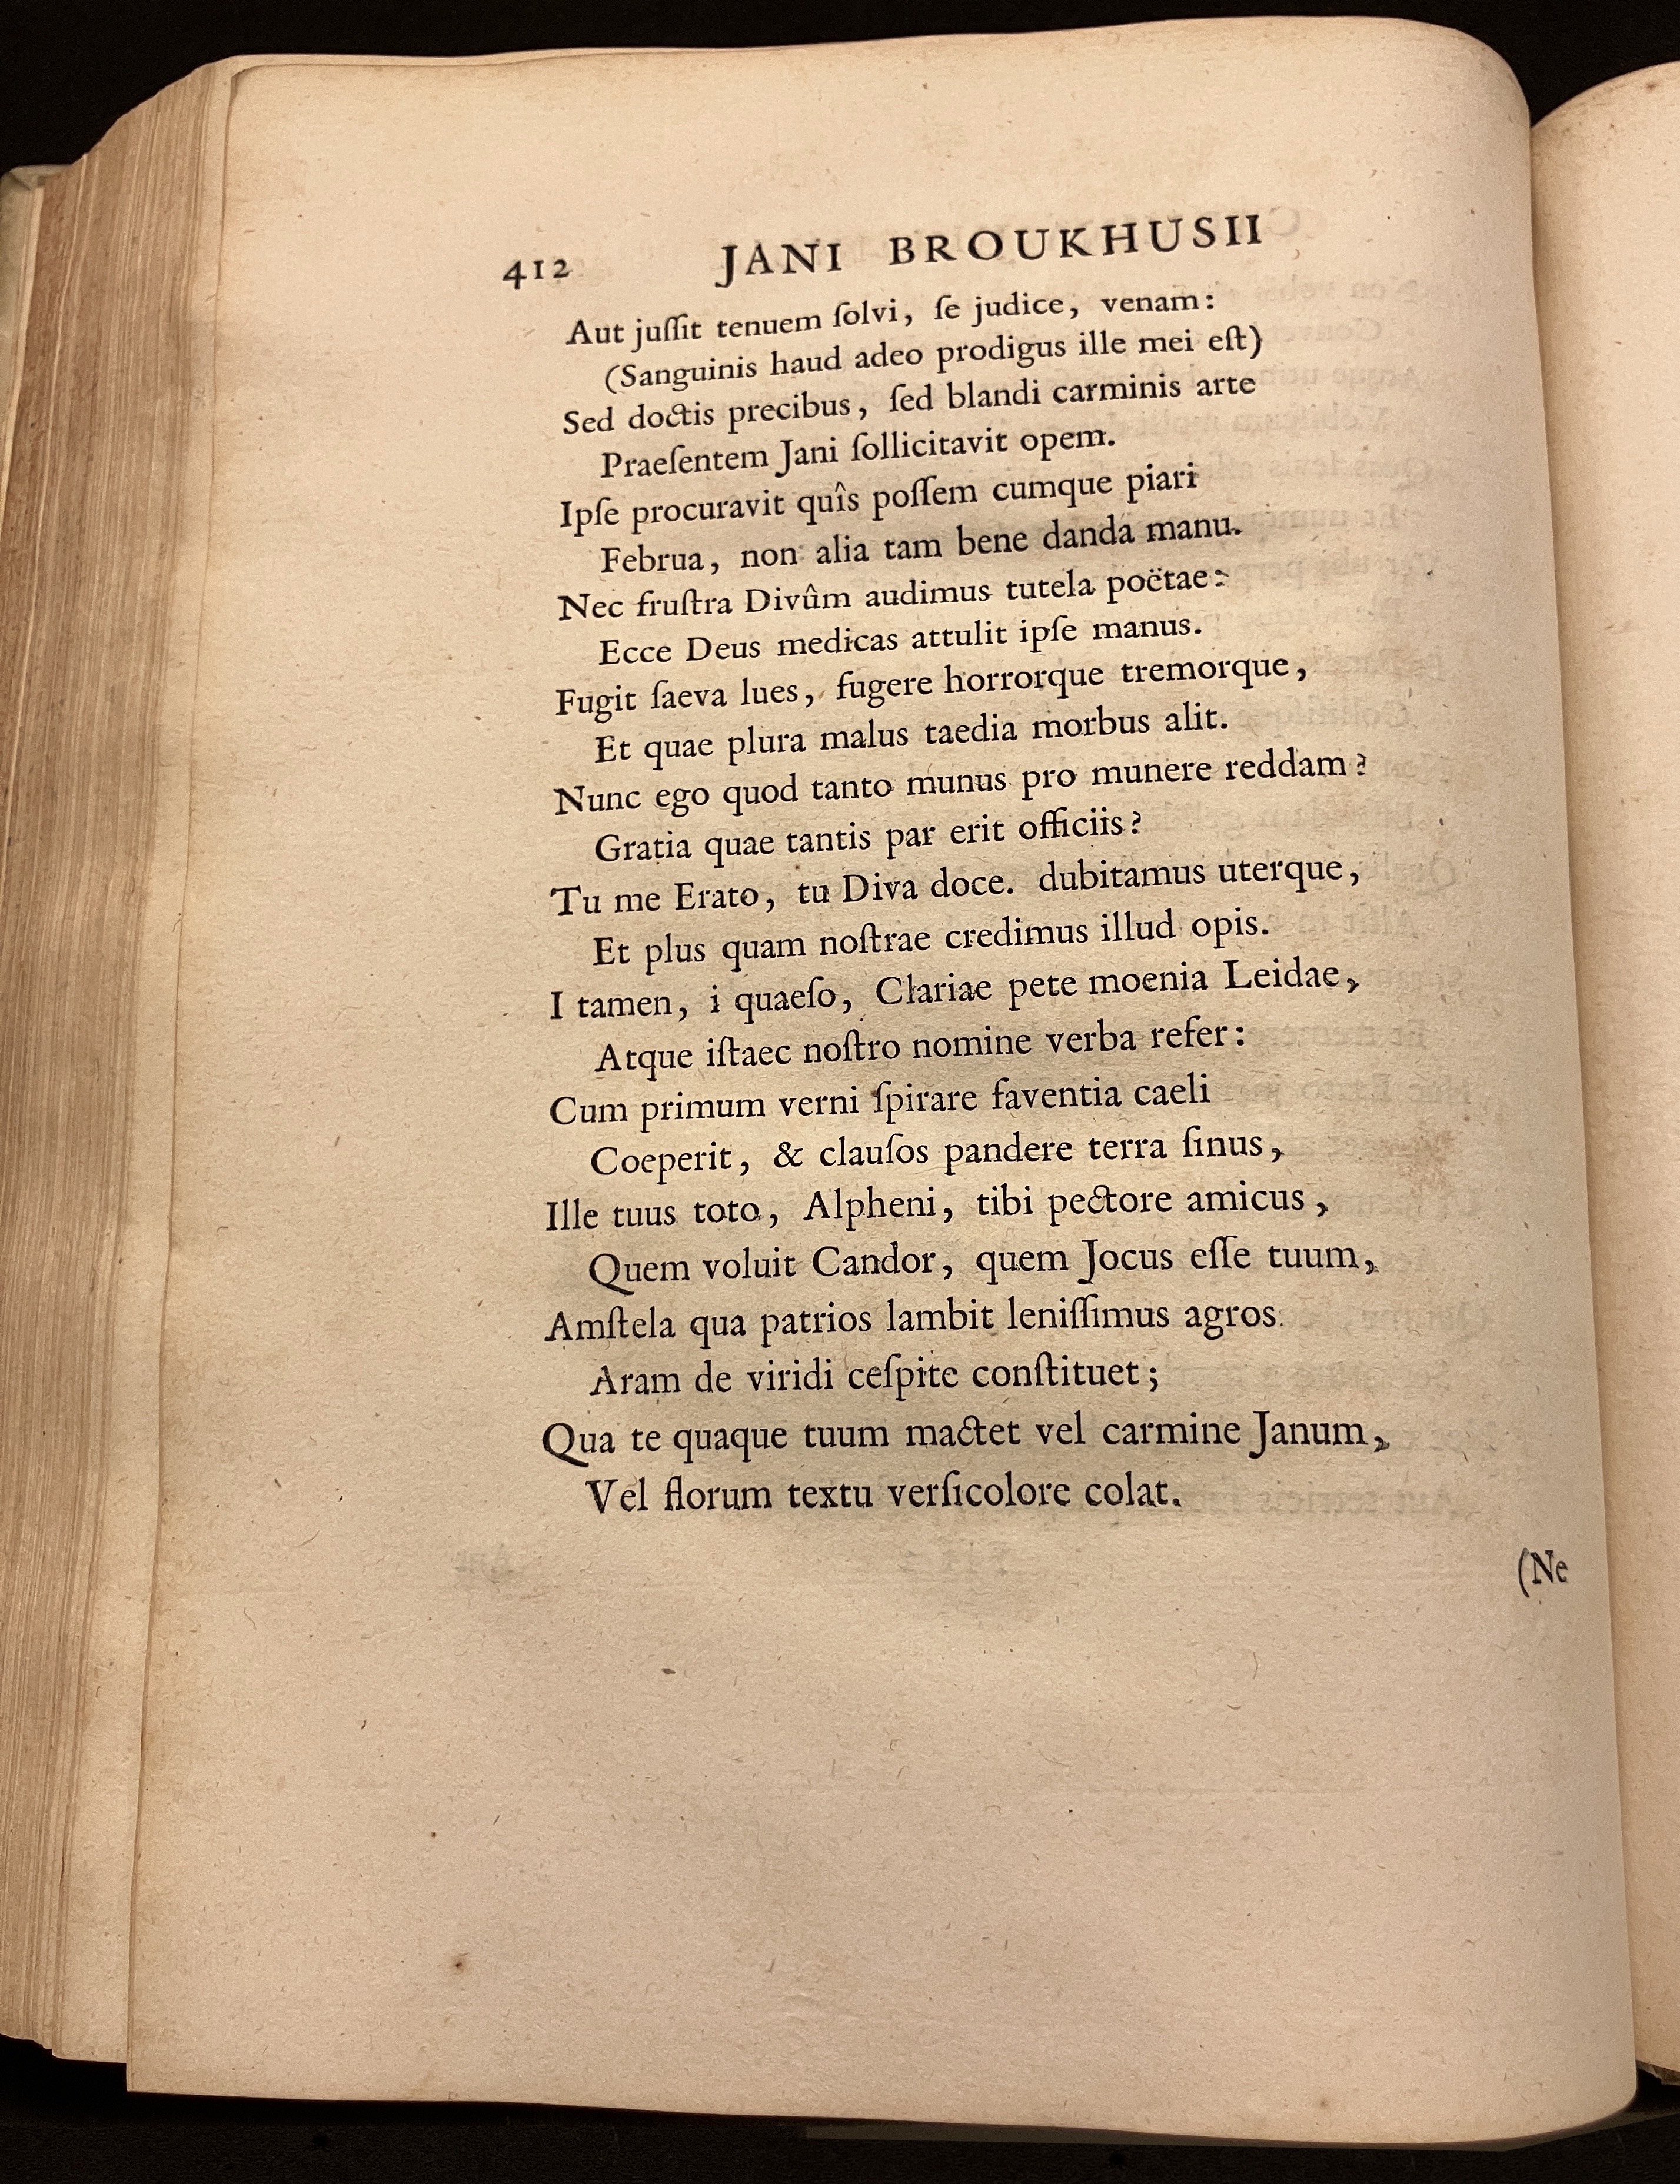 412 JANI BROUKHUSII
Aut juſſit tenuem ſolvi, ſe judice, venam:
(Sanguinis haud adeo prodigus ille mei eſt)
Sed doctis precibus, ſed blandi carminis arte
Praeſentem Jani ſollicitavit opem.
Ipſe procuravit quîs poſſem cumque piari
Februa, non alia tam bene danda manu.
Nec fruſtra Divûm audimus tutela poëtae:
Ecce Deus medicas attulit ipſe manus.
Fugit ſaeva lues, fugere horrorque tremorque,
Et quae plura malus taedia morbus alit.
Nunc ego quod tanto munus pro munere reddam?
Gratia quae tantis par erit officiis?
Tu me Erato, tu Diva doce. dubitamus uterque,
Et plus quam noſtrae credimus illud opis.
I tamen, i quaeſo, Clariae pete moenia Leidae,
Atque iſtaec noſtro nomine verba refer:
Cum primum verni ſpirare faventia caeli
Coeperit, & clauſos pandere terra ſinus,
Ille tuus toto, Alpheni, tibi pectore amicus,
Quem voluit Candor, quem Jocus eſſe tuum,
Amſtela qua patrios lambit leniſſimus agros
Aram de viridi ceſpite conſtituet;
Qua te quaque tuum mactet vel carmine Janum,
Vel florum textu verſicolore colat.
(Ne